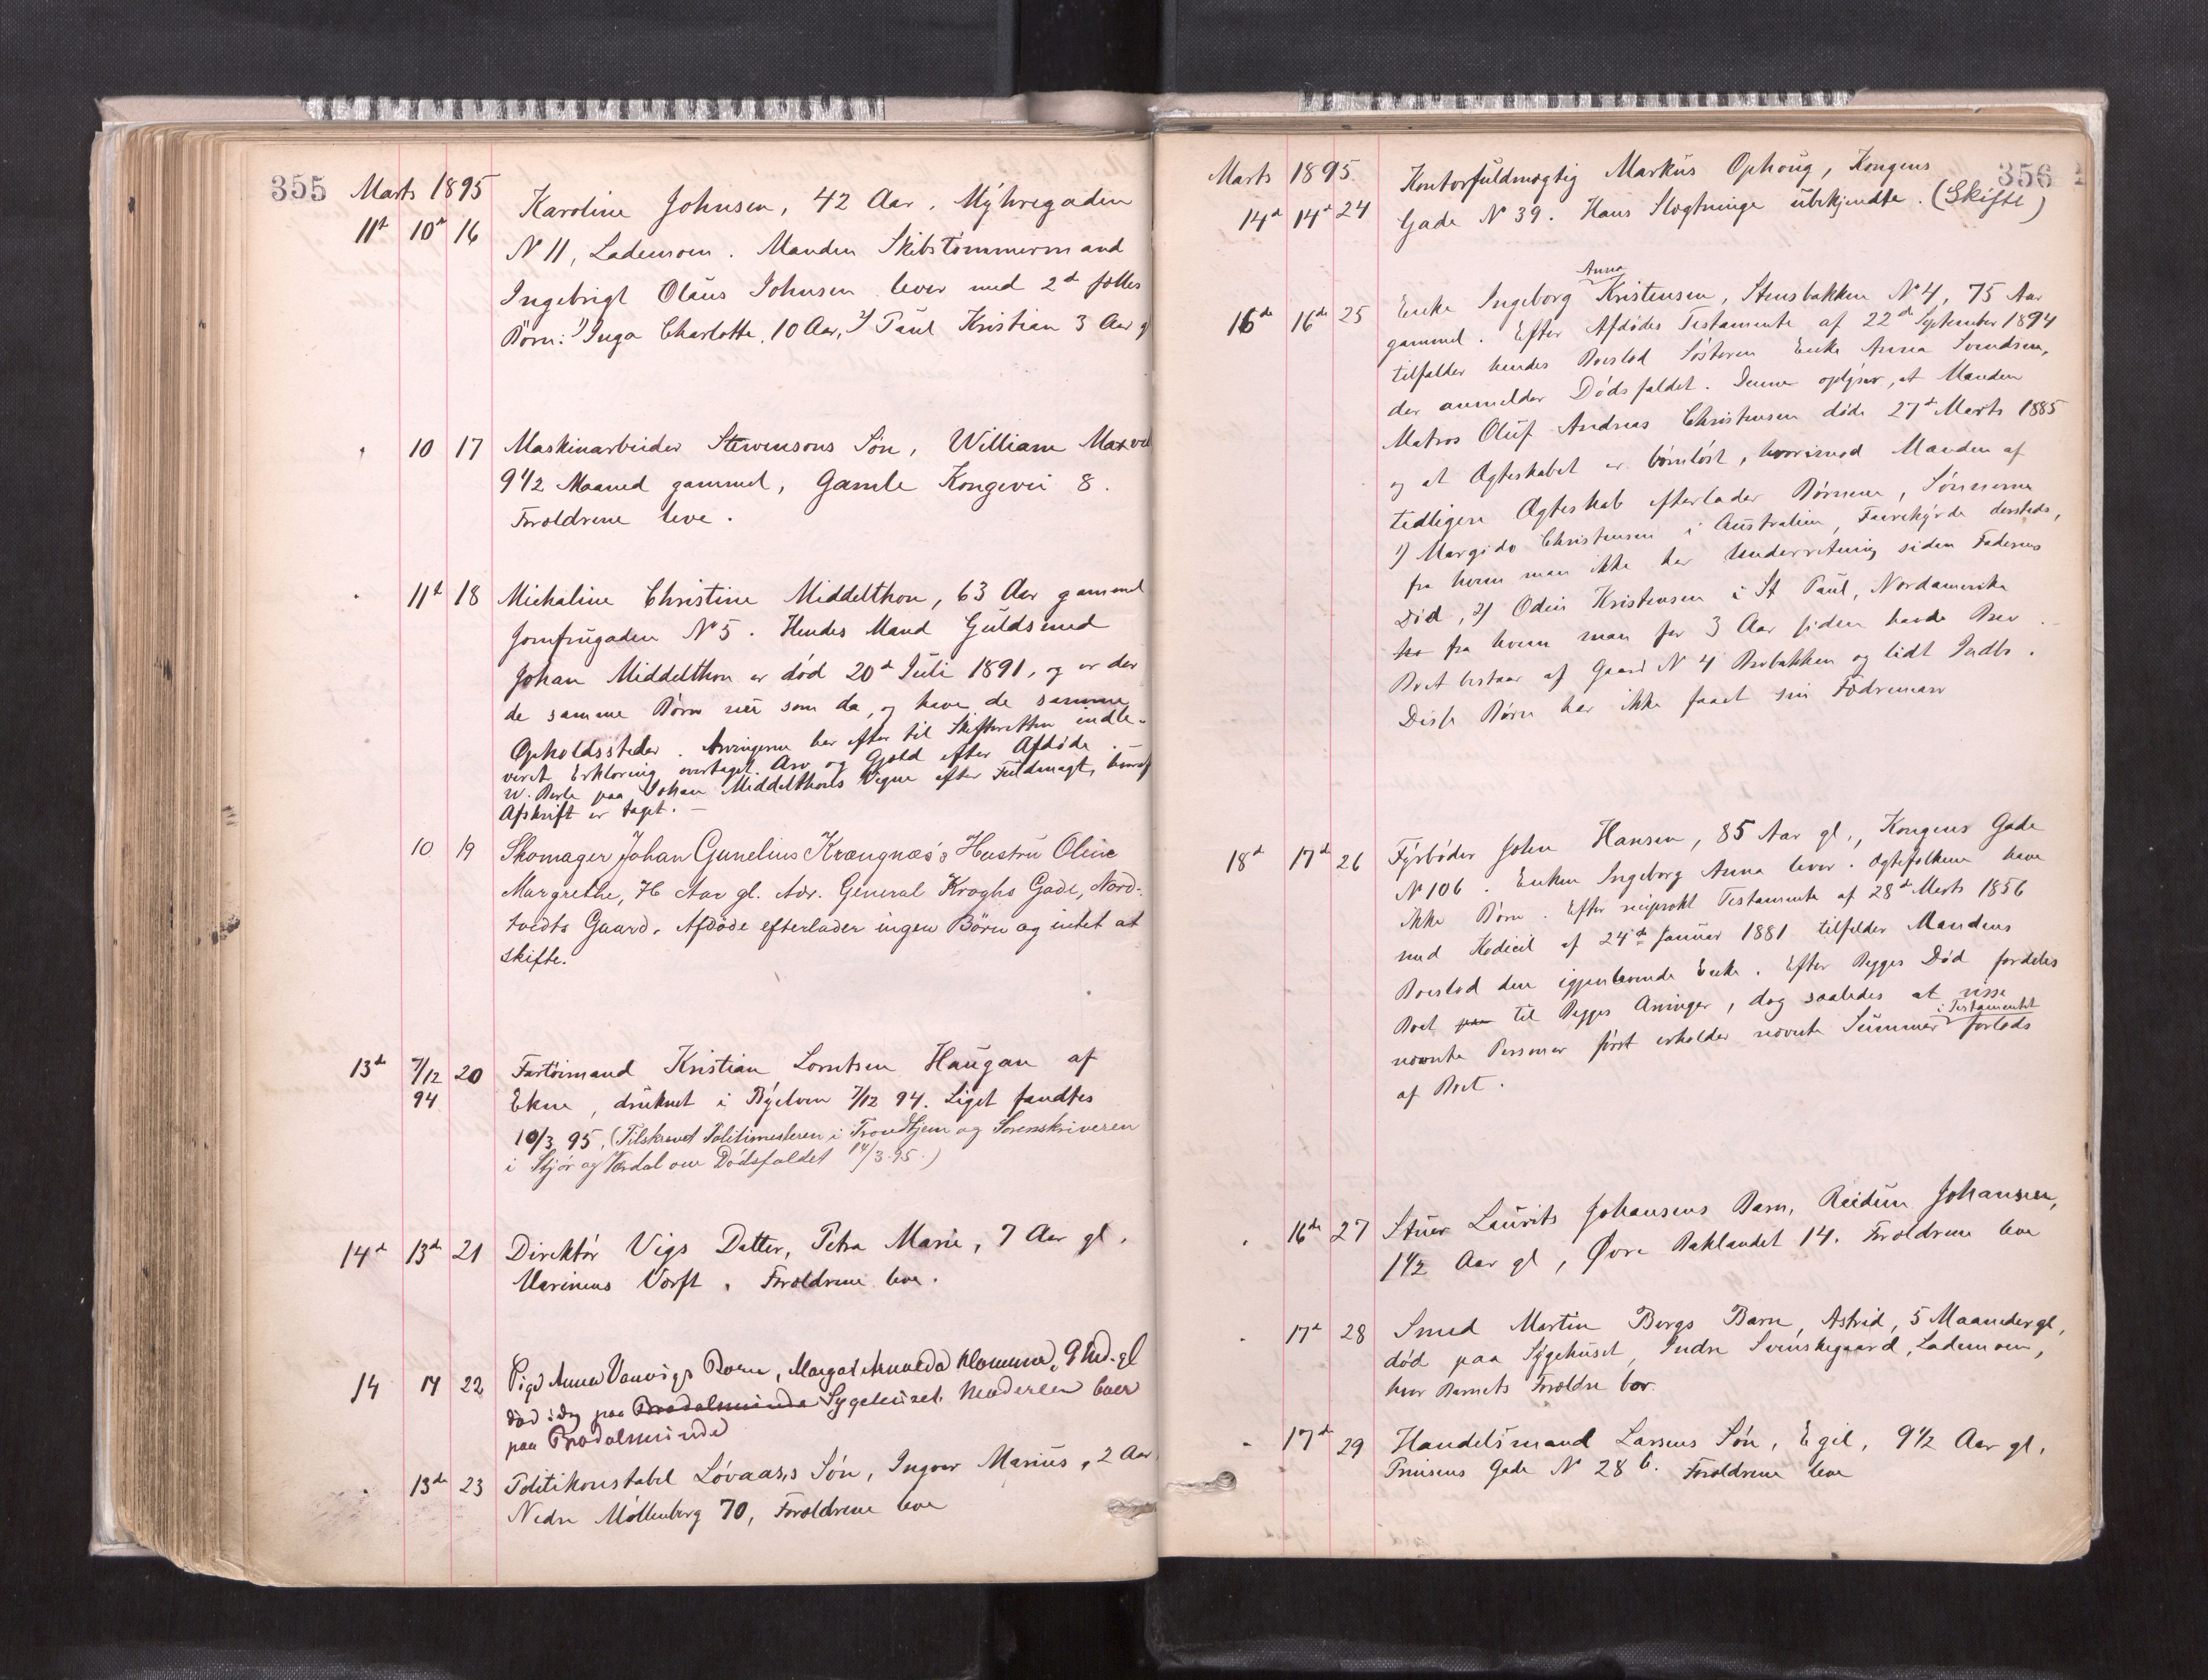 355 Marts 1895
11te 10de 16 Karoline Johnsen, 42 Aar, Myhregaden
No 11, Lademoen. Manden Skibstømmermand
Ingebrigt Olaus Johnsen lever med 2de fælles
Børn: 1) Inga Charlotte, 10 Aar, 2) Paul Kristian 3 Aar g
" 10 17 Maskinarbeider Stevensons Søn, William Maxvel
9 1/2 Maaned gammel, Gamle Kongevei 8.
Forældrene leve.
" 11te 18 Michaline Christine Middelthon, 63 Aar gammel
Jomfrugaden No 5. Hendes Mand Guldsmed
Johan Middelthon er død 20de Juli 1891, og er der
de samme Børn nu som da, og have de samme
Opholdssteder. Arvingerne har efter til Skifteretten indle-
veret Erklæring overtaget Arv og Gjæld efter Afdøde. –
W. paa Johan Middelthons Vegne efter Fuldmagt, hvoraf
Afskrift er taget. –
10 19 Skomager Johan Gunelius Krængnæs's Hustru Oline
Margrethe, 76 Aar gl. Adr. General Kroghs Gade, Nord-
tvedts Gaard. Afdøde efterlader ingen Børn og intet at
skifte.
13de 7/12 94 20 Fartøimand Kristian Lorntsen Haugan af
Ekne, druknet i Byelven 7/12 94. Liget fandtes
10/3 95. (Tilskrevet Politimesteren i Trondhjem og Sorenskriveren
i Stjør og Værdal om Dødsfaldet 14/3 95.)
14de 13de 21 Direktør Vigs Datter, Petra Marie, 7 Aar gl.
Marinens Værft. Forældrene leve.
14 14 22 Pige Anna Vanvigs Barn, Margat Amalda Klomma, 9 Md. gl
død idag paa Bradalsminde Sygehuset. Moderen boer
paa Bradalsminde
" 13de 23 Politikonstabel Løvaas's Søn, Ingvar Marius, 2 Aar
Nedre Møllenberg 70, Forældrene leve
Marts 1895 356
14de 14de 24 Kontorfuldmægtig Markus Ophoug, Kongens
Gade No 39. Hans Slægtninge ubekjendte. (Skifte)
16de 16de 25 Enke Ingeborg Anna Kristensen, Stensbakken No 4, 75 Aar
gammel. Efter Afdødes Testamente af 22de September 1894
tilfalder hendes Boeslod Søsteren Enke Anna Svendsen,
der anmelder Dødsfaldet. Denne oplyser, at Manden
Matros Oluf Andreas Christensen døde 27de Marts 1885
og at Ægteskabet er barnløst, hvorimod Manden af
tidligere Ægteskab efterlader Børnene, Sønnerne
1) Margido Christensen i Australien, Faarehyrde dersteds,
fra hvem man ikke har Underretning siden Faderens
Død, 2) Odin Kristensen i St Paul, Nordamerika
ho fra hvem man for 3 Aar siden havde Brev.
Boet bestaar af Gaard No 4 Brobakken og lidt Indbo.
Disse Børn har ikke faaet sin Fædrenearv
18de 17de 26 Fyrbøder John Hansen, 85 Aar gl., Kongens Gade
No 106. Enken Ingeborg Anna lever. Ægtefolkene have
ikke Børn. Efter reciprokt Testamente af 28de Marts 1856
med Kodicil af 24de Januar 1881 tilfalder Mandens
Boeslod den igjenlevende Enke. Efter Begges Død fordeles
Boet til Begges Arvinger, dog saaledes at visse
nævnte Personer først erholder nævnte Summer i Testamentet forlods
af Boet.
" 16de 27 Stuer Laurits Johansens Barn, Reidun Johansen,
1 1/2 Aar gl, Øvre Baklandet 14. Forældrene leve
" 17de 28 Smed Martin Bergs Barn, Astrid, 5 Maaneder gl,
død paa Sygehuset, Indre Svenskegaard, Lademoen,
hvor Barnets Forældre bor.
" 17de 29 Handelsmand Larsens Søn, Egil, 9 1/2 Aar gl,
Prinsens Gade No 28 b. Forældrene leve